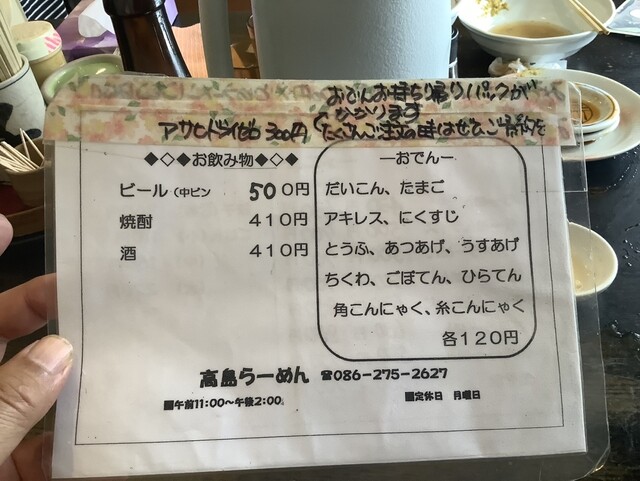 おでんお持ち帰りパックが
かかります
アサヒドライゼロ 300円
たくさんご注文の時はぜひご予約を
◆◇◆お飲み物◆◇◆
ビール（中ビン 500円
焼酎 410円
酒 410円
―おでん―
だいこん、たまご
アキレス、にくすじ
とうふ、あつあげ、うすあげ
ちくわ、ごぼてん、ひらてん
角こんにゃく、糸こんにゃく
各120円
高島らーめん ☎086-275-2627
■午前11:00～午後2:00
■定休日 月曜日